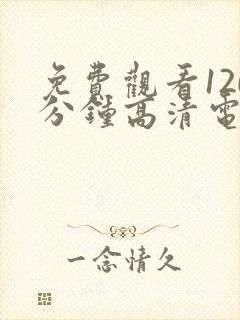 免費觀看120
分鐘高清電
一念情久